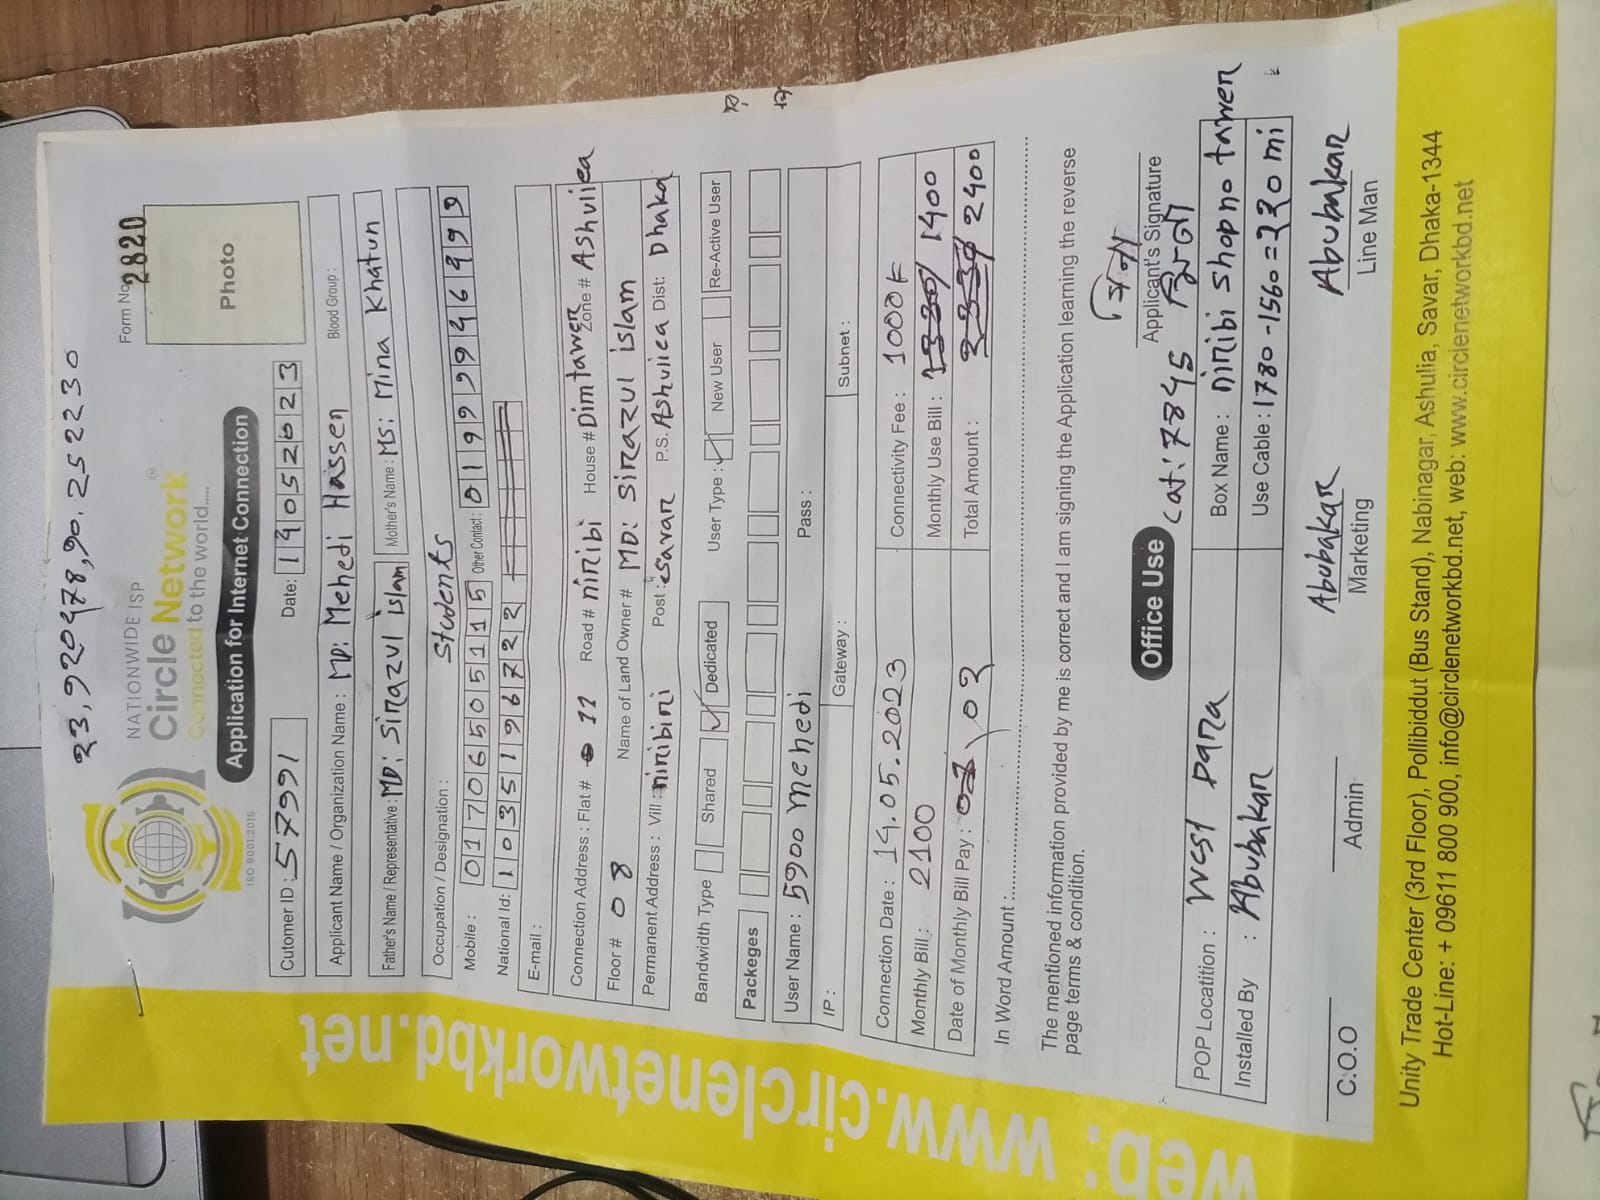 23,920478,90.252230
NATIONWIDE ISP
Circle Network
Connected to the world.....
ISO 9001:2015
Form No. 2820
Application for Internet Connection
Photo
Cutomer ID : 57991 Date: 14052023
Applicant Name / Organization Name : MD: Mehedi Hassen Blood Group :
Father's Name / Representative : MD: Sirazul islam Mother's Name : MS: Mina Khatun
Occupation / Designation : Students
Mobile : 01706505115 Other Contact :
National Id: 1035196722
E-mail :
Connection Address : Flat # 11 Road # niribi House # Dimtawer Zone # Ashuliea
Floor # 08 Name of Land Owner # MD: Sirazul islam
Permanent Address : Vill : niribiri Post : savar P.S. Ashuliea Dist: Dhaka
Bandwidth Type Shared Dedicated User Type : New User Re-Active User
Packeges
User Name : 5900 mehedi Pass :
IP : Gateway : Subnet :
Connection Date : 14.05.2023 Connectivity Fee : 1000t
Monthly Bill : 2100 Monthly Use Bill : 1400
Date of Monthly Bill Pay : 02 Total Amount : 2400
In Word Amount :
The mentioned information provided by me is correct and I am signing the Application learning the reverse
page terms & condition.
Applicant's Signature
Office Use
cat: 7845
POP Locatition : West para Box Name : niribi shopno tawer
Installed By : Abubakar Use Cable : 1780-1560=220 mi
Abubakar Abubakar
C.O.O Admin Marketing Line Man
Unity Trade Center (3rd Floor), Pollibiddut (Bus Stand), Nabinagar, Ashulia, Savar, Dhaka-1344
Hot-Line: + 09611 800 900, info@circlenetworkbd.net, web: www.circlenetworkbd.net
web: www.circlenetworkbd.net